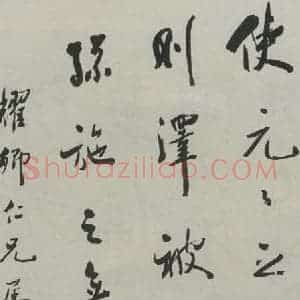 使元元之
则泽被
孙施之无
耀卿仁兄属
Shufaziliao.com